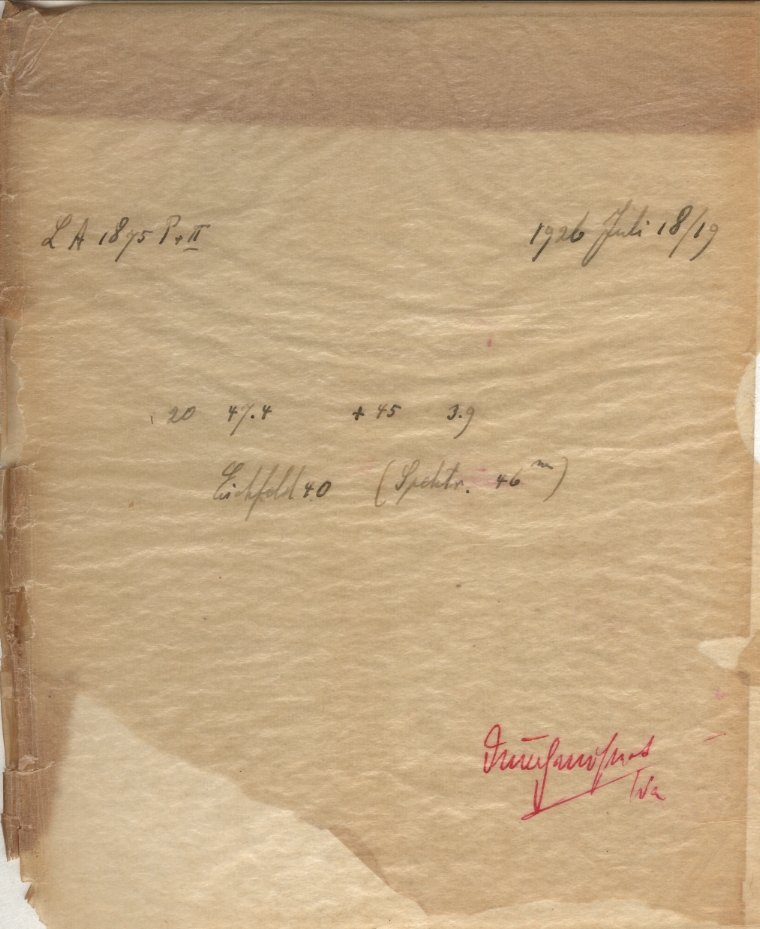 LA 1875 P+II 1926 Juli 18/19
20 47.4 +45 3.9
Eichfeld 40 (Spektr. 46ᵐ)
Durchgemustert
Wa